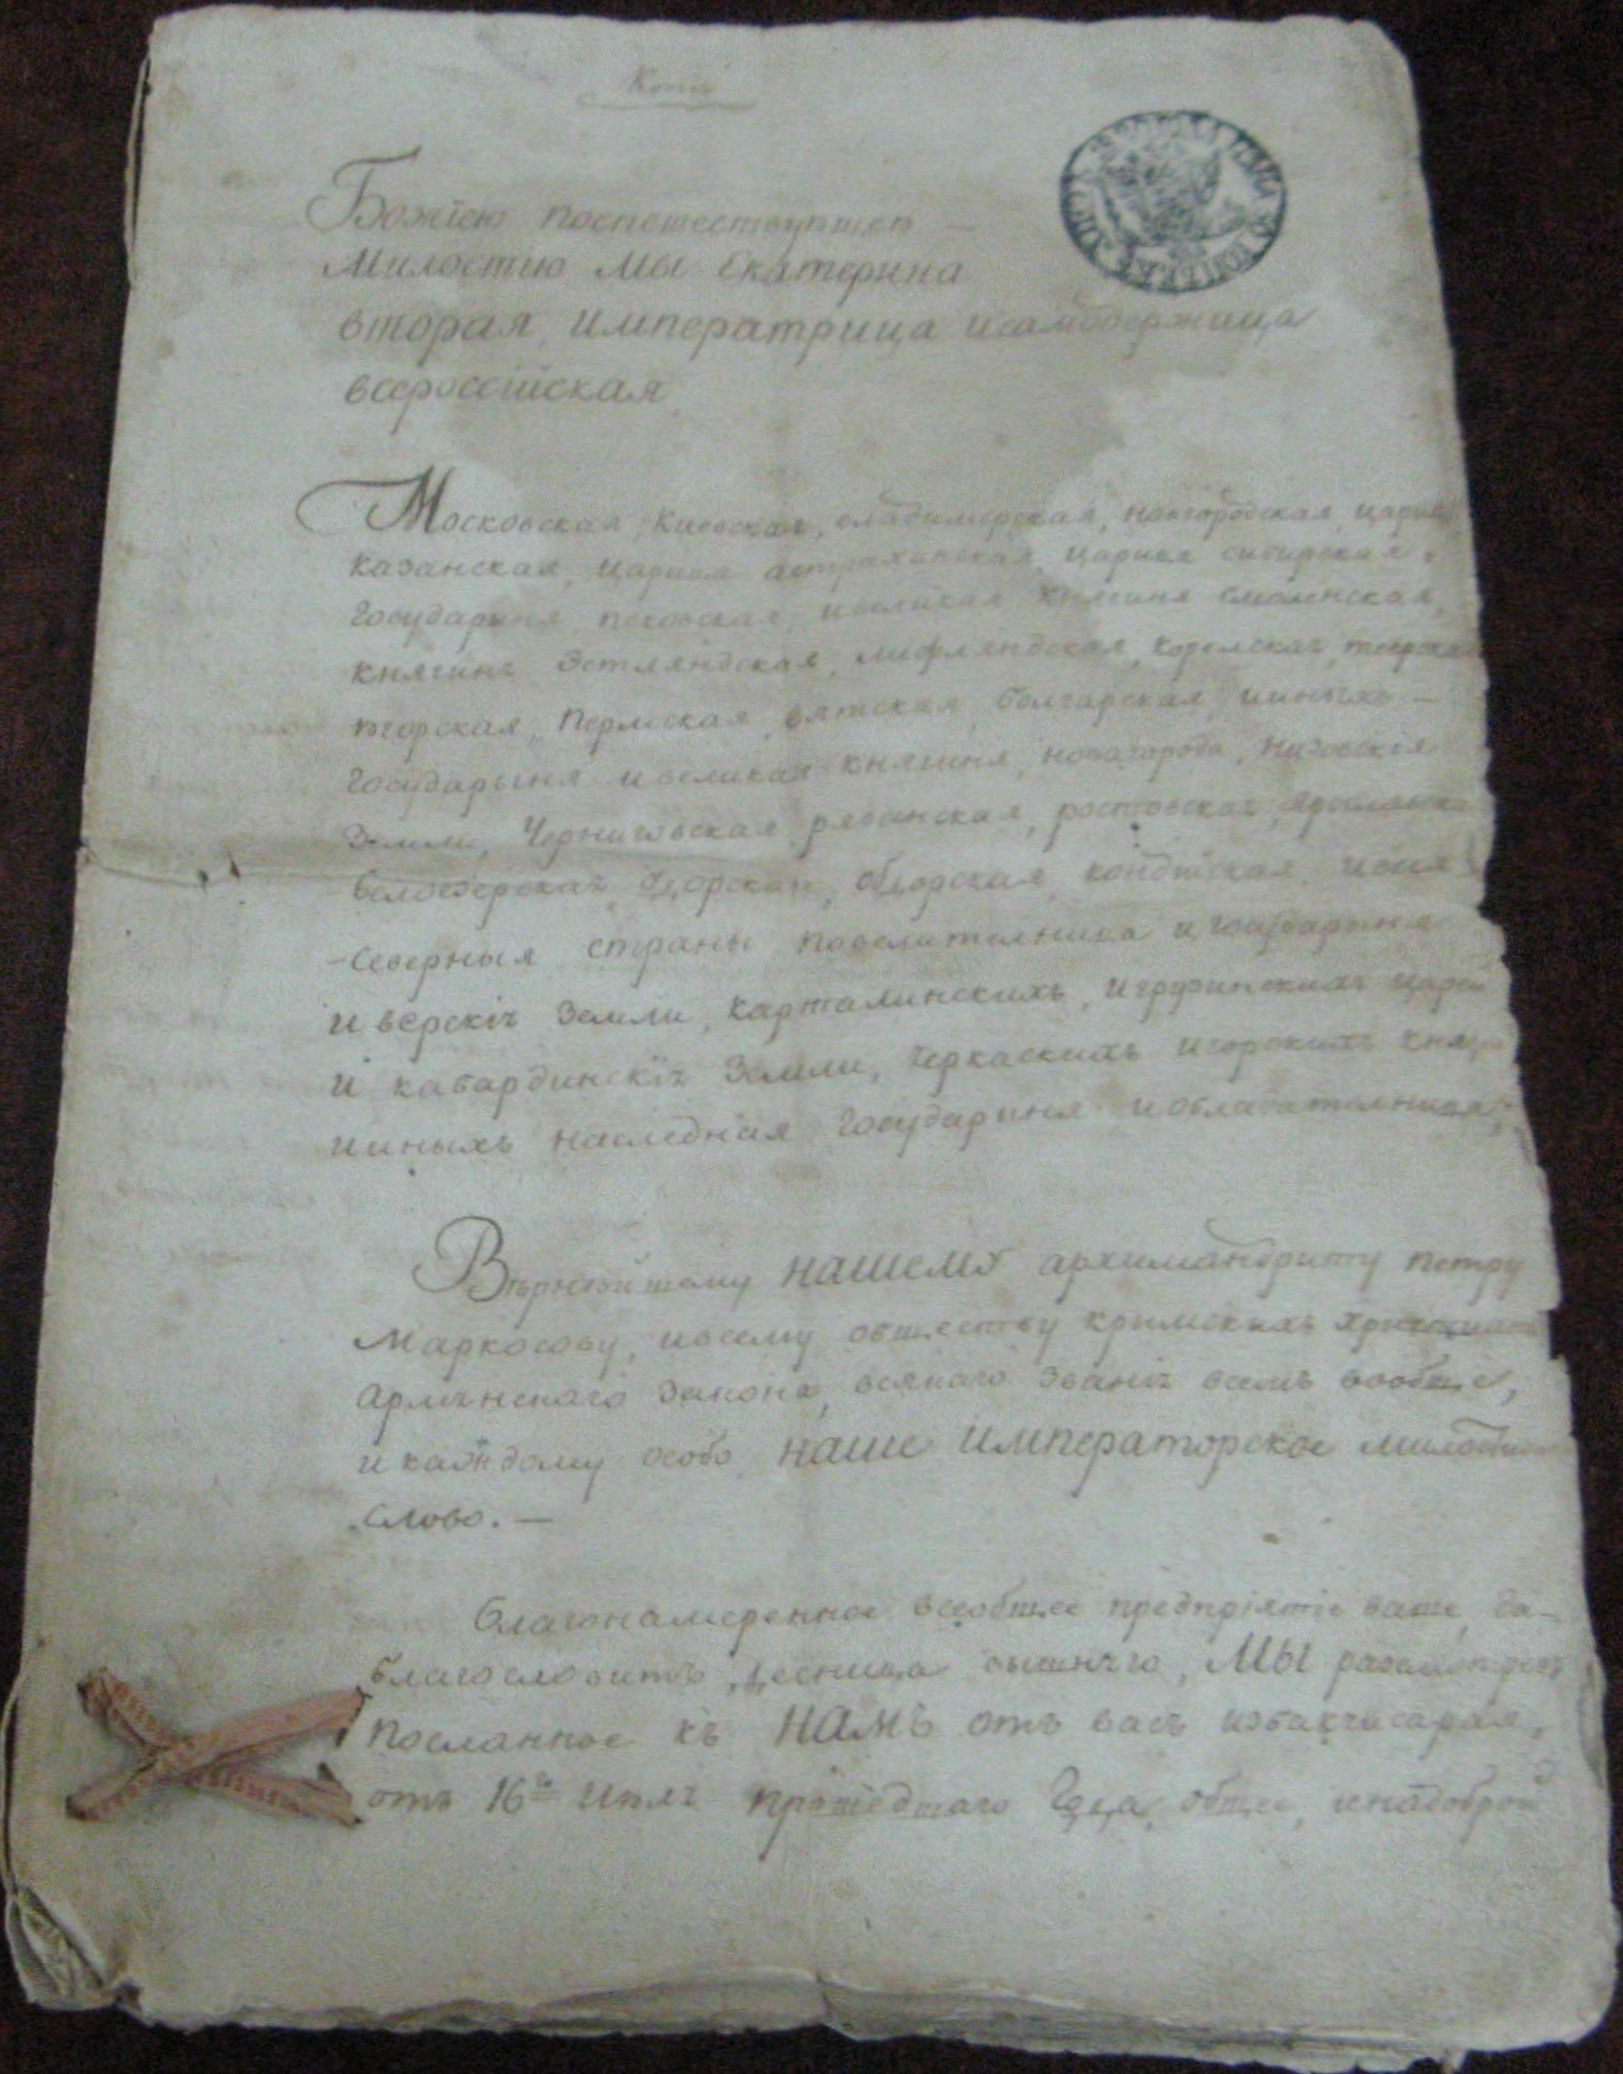 Копія
Божіею поспешествующею
Милостию Мы Екатерина
вторая, императрица исамодержица
всероссійская,
Московская, Киевская, владимерская, новгородская, царица
казанская, царица астраханская, царица сибирская,
Государыня псковская, ивеликая княгиня смоленская,
княгиня Эстляндская, лифляндская, корелская, тверская
югорская, Пермская, вятская, болгарская, ииныхъ
Государыня ивеликая княгиня, новагорода, низовскія
Земли, Черниговская, рязанская, ростовская, Ярославская
белоозерская, удорская, обдорская, кондійская, ивсея
Северныя страны повелителница и Государыня
иверскія Земли, карталинскихъ, игрузинскихъ царей
и кабардинскія Земли, черкаскихъ игорскихъ князей
ииныхъ наследная Государыня иобладателница,
Вѣрнейшему нашему архимандриту петру
Маркосову, ивсему обществу кримскихъ християнъ
армянскаго Закона, всякаго Званія всемъ вообще,
и каждому особо, наше императорское милостивое
слово. —
Благонамеренное всеобщее предпріятіе ваше, да
благословитъ десница вышняго, МЫ разсмотревъ
посланное къ НАМЪ отъ васъ избахчисарая,
отъ 16го июля прошедшаго года, общее, инадоброй